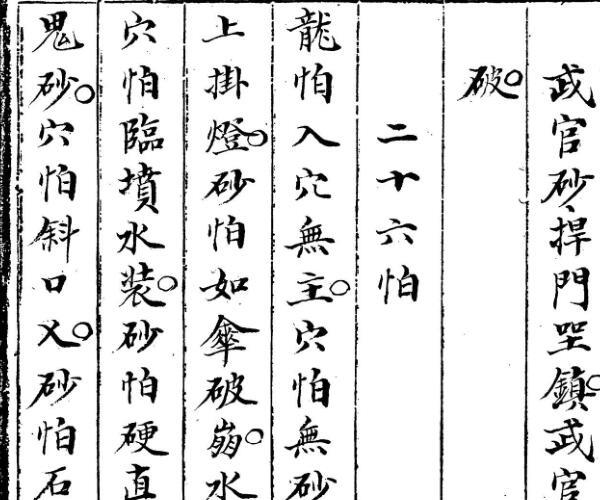 武官砂、捍門坐鎮。武官
破。
二十六怕
龍怕入穴無主。穴怕無砂
上掛燈。砂怕如傘破崩。水
穴怕臨墳水裝。砂怕硬直
鬼砂。穴怕斜口乂。砂怕石